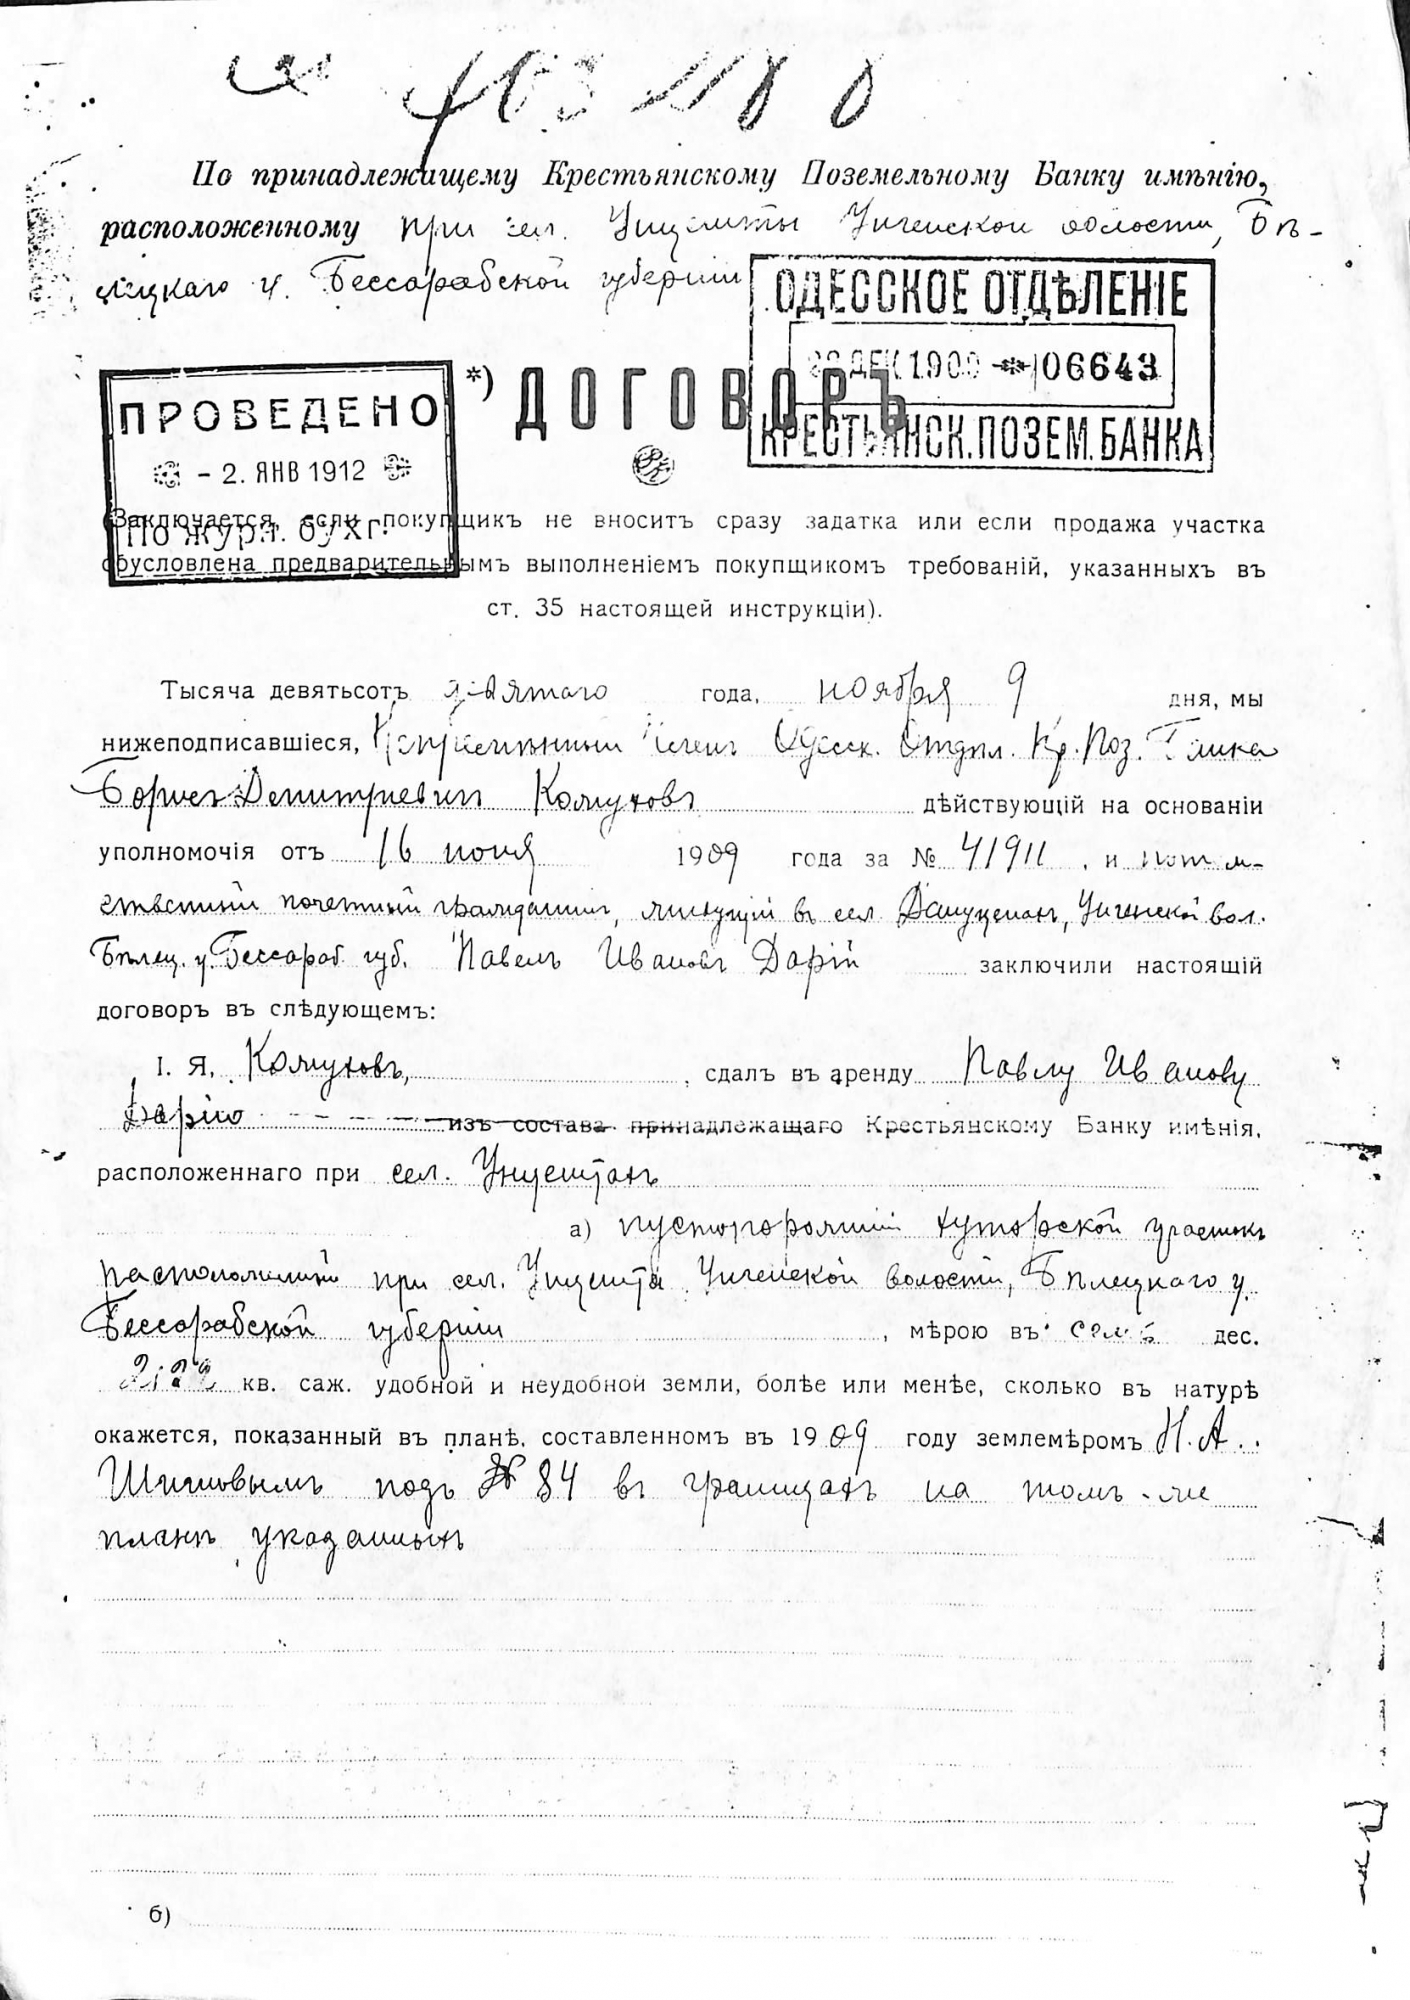 По принадлежищему Крестьянскому Поземельному Банку имѣнію,
расположенному при сел. Унцешты Унгенской волости, Бѣ-
лецкаго у. Бессарабской губерніи
ОДЕССКОЕ ОТДѢЛЕНІЕ
ДЕК 1909 06643
КРЕСТЬЯНСК. ПОЗЕМ. БАНКА
ПРОВЕДЕНО
- 2. ЯНВ 1912
По журн. бухг.
*) ДОГОВОРЪ
(Заключается, если покупщикъ не вноситъ сразу задатка или если продажа участка
обусловлена предварительнымъ выполненіемъ покупщикомъ требованій, указанныхъ въ
ст. 35 настоящей инструкціи).
Тысяча девятьсотъ девятаго года, ноября 9 дня, мы
нижеподписавшіеся, Непремѣнный Членъ Одесск. Отдѣл. Кр. Поз. Банка
Борисъ Дмитріевичъ Комуховъ дѣйствующій на основаніи
уполномочія отъ 16 іюня 1909 года за № 41911, и потом-
ственный почетный гражданинъ, живущій въ сел. Унгенской вол.
Бѣлец. у. Бессараб. губ. Павелъ Ивановъ Дарій заключили настоящій
договоръ въ слѣдующемъ:
I. Я, Комуховъ, сдалъ въ аренду Павлу Иванову
Дарію из состава принадлежащаго Крестьянскому Банку имѣнія,
расположеннаго при сел. Унцештахъ
а) пустопорожній хуторской участокъ
расположенный при сел. Унцешты Унгенской волости, Бѣлецкаго у.
Бессарабской губерніи, мѣрою въ семь дес.
кв. саж. удобной и неудобной земли, болѣе или менѣе, сколько въ натурѣ
окажется, показанный въ планѣ, составленномъ въ 1909 году землемѣромъ Н. А.
Шишовымъ подъ № 84 въ границахъ на томъ-же
планѣ указанныхъ
б)